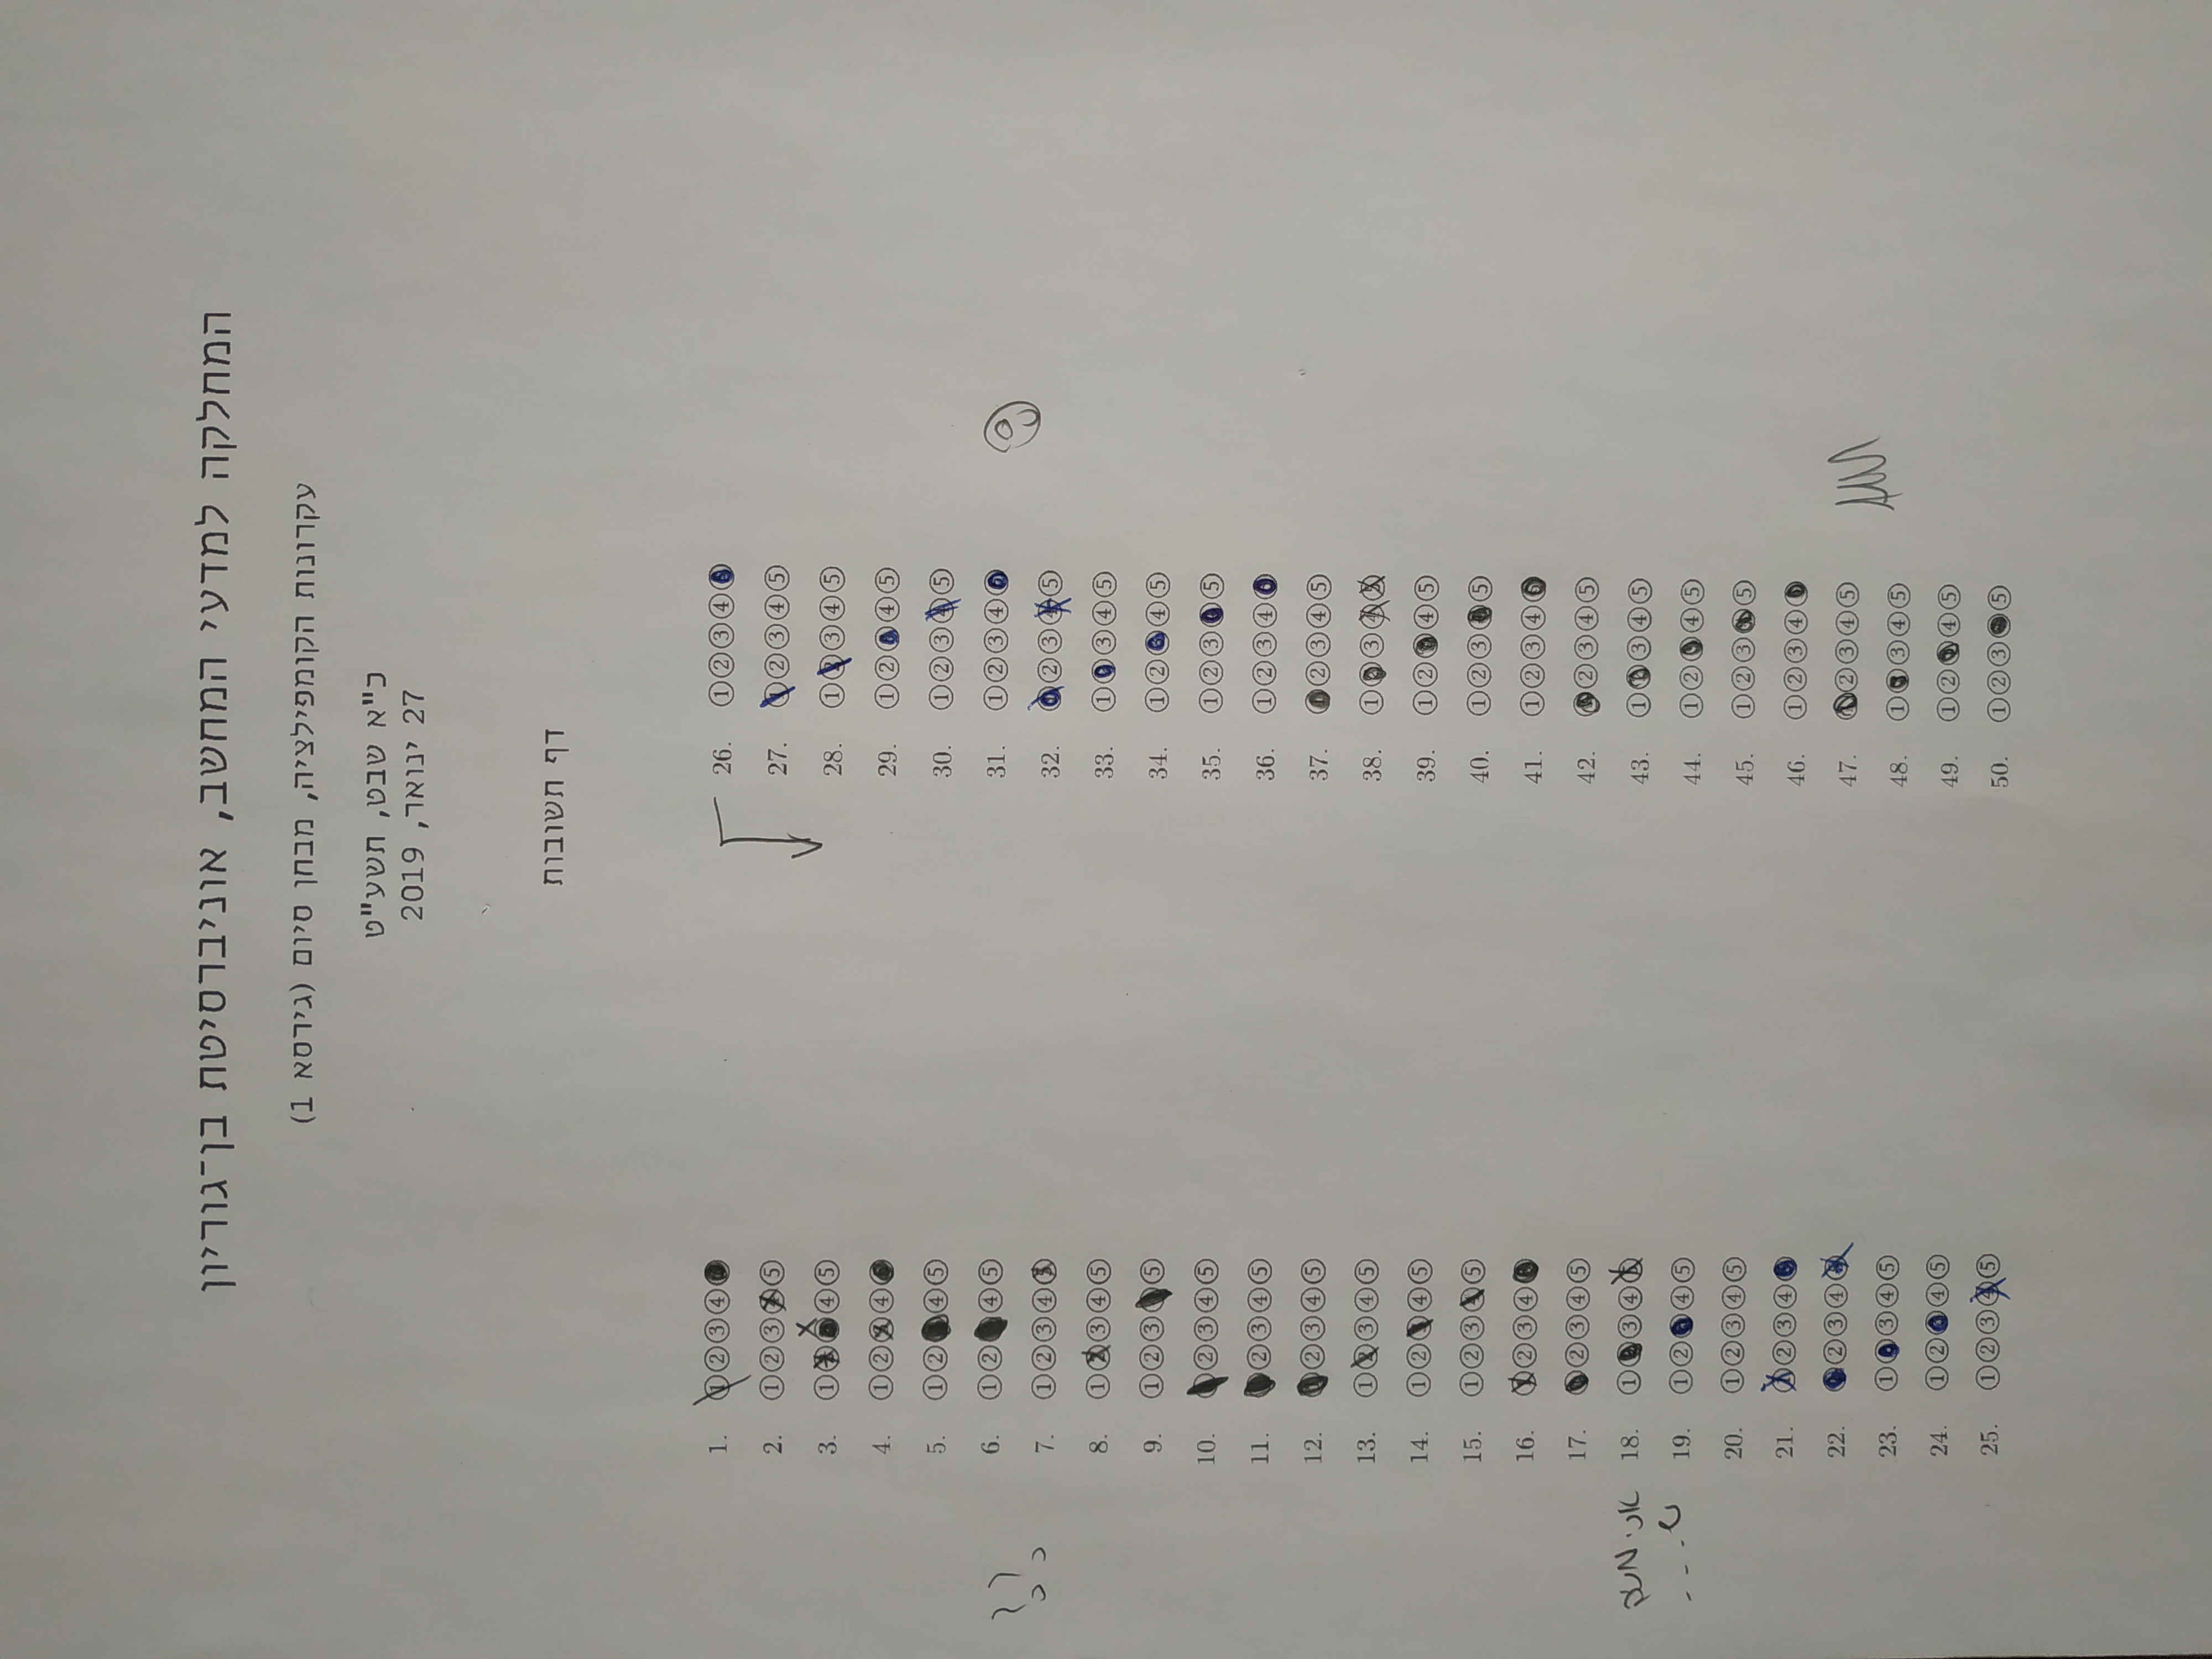 המחלקה למדעי המחשב, אוניברסיטת בן־גוריון
עקרונות הקומפילציה, מבחן סיום (גירסא 1)
כ"א שבט, תשע"ט
27 ינואר, 2019
דף תשובות
1. ① ② ③ ④
2. ① ② ③ ④ ⑤
3. ① ② ④ ⑤
4. ① ② ③ ④
5. ① ② ④ ⑤
6. ① ② ④ ⑤
7. ① ② ③ ④ ⑤
8. ① ② ③ ④ ⑤
9. ① ② ③ ⑤
10. ② ③ ④ ⑤
11. ② ③ ④ ⑤
12. ② ③ ④ ⑤
13. ① ② ③ ④ ⑤
14. ① ② ③ ④ ⑤
15. ① ② ③ ④ ⑤
16. ① ② ③ ④
17. ② ③ ④ ⑤
אני 18. ① ③ ④ ⑤
ש... 19. ① ② ④ ⑤
20. ① ② ③ ④ ⑤
21. ① ② ③ ④
22. ② ③ ④
23. ① ③ ④ ⑤
24. ① ② ④ ⑤
25. ① ② ③ ④ ⑤
26. ① ② ③ ④
27. ① ② ③ ④ ⑤
28. ① ② ③ ④ ⑤
29. ① ② ④ ⑤
30. ① ② ③ ④ ⑤
31. ① ② ③ ④
32. ② ③ ④ ⑤
33. ① ③ ④ ⑤
34. ① ② ④ ⑤
35. ① ② ③ ⑤
36. ① ② ③ ④
37. ① ② ③ ④ ⑤
38. ① ② ③ ④ ⑤
39. ① ② ④ ⑤
40. ① ② ③ ⑤
41. ① ② ③ ④ ⑤
42. ② ③ ④ ⑤
43. ① ② ③ ④ ⑤
44. ① ② ④ ⑤
45. ① ② ③ ⑤
46. ① ② ③ ④
47. ① ② ③ ④ ⑤
48. ① ③ ④ ⑤
49. ① ② ④ ⑤
50. ① ② ③ ⑤